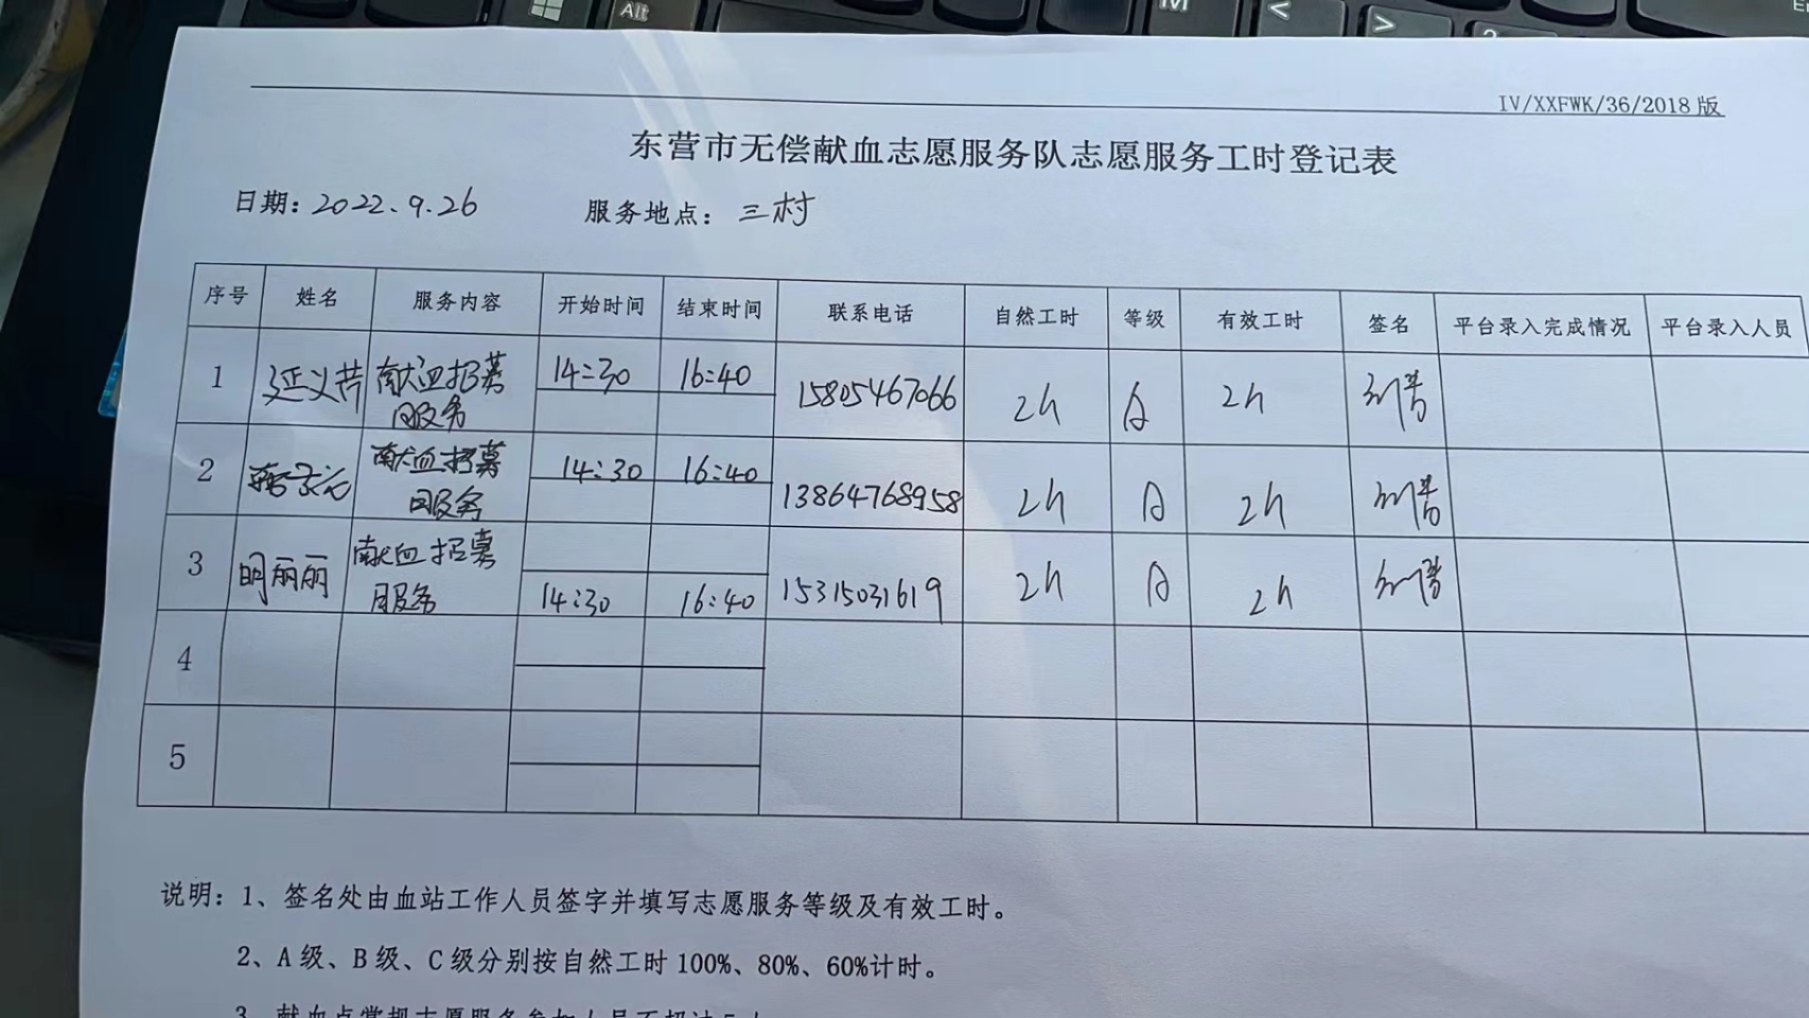 Alt
IV/XXFWK/36/2018 版
东营市无偿献血志愿服务队志愿服务工时登记表
日期：2022.9.26 服务地点：三村
序号 姓名 服务内容 开始时间 结束时间 联系电话 自然工时 等级 有效工时 签名 平台录入完成情况 平台录入人员
1 延义芹 献血招募服务 14:30 16:40 15805467066 2h A 2h
2 献血招募服务 14:30 16:40 13864768958 2h A 2h
3 明丽丽 献血招募服务 14:30 16:40 15315031619 2h A 2h
4
5
说明：1、签名处由血站工作人员签字并填写志愿服务等级及有效工时。
2、A 级、B 级、C 级分别按自然工时 100%、80%、60%计时。